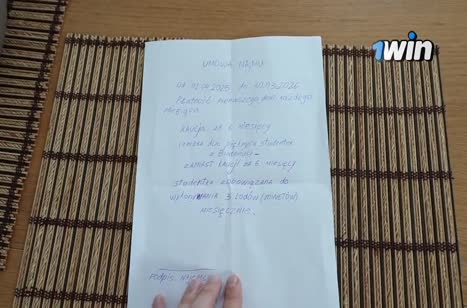 1win
UMOWA NAJMU
od 01.04.2025 do 30.03.2026
Płatność pierwszego dnia każdego
miesiąca
KAUCJA ZA 6 miesięcy
studentka
z Białorusi
ZAMIAST KAUCJI ZA 6 miesięcy
studentka zobowiązana do
wykonywania 3 lodów (minetów)
miesięcznie.
podpis